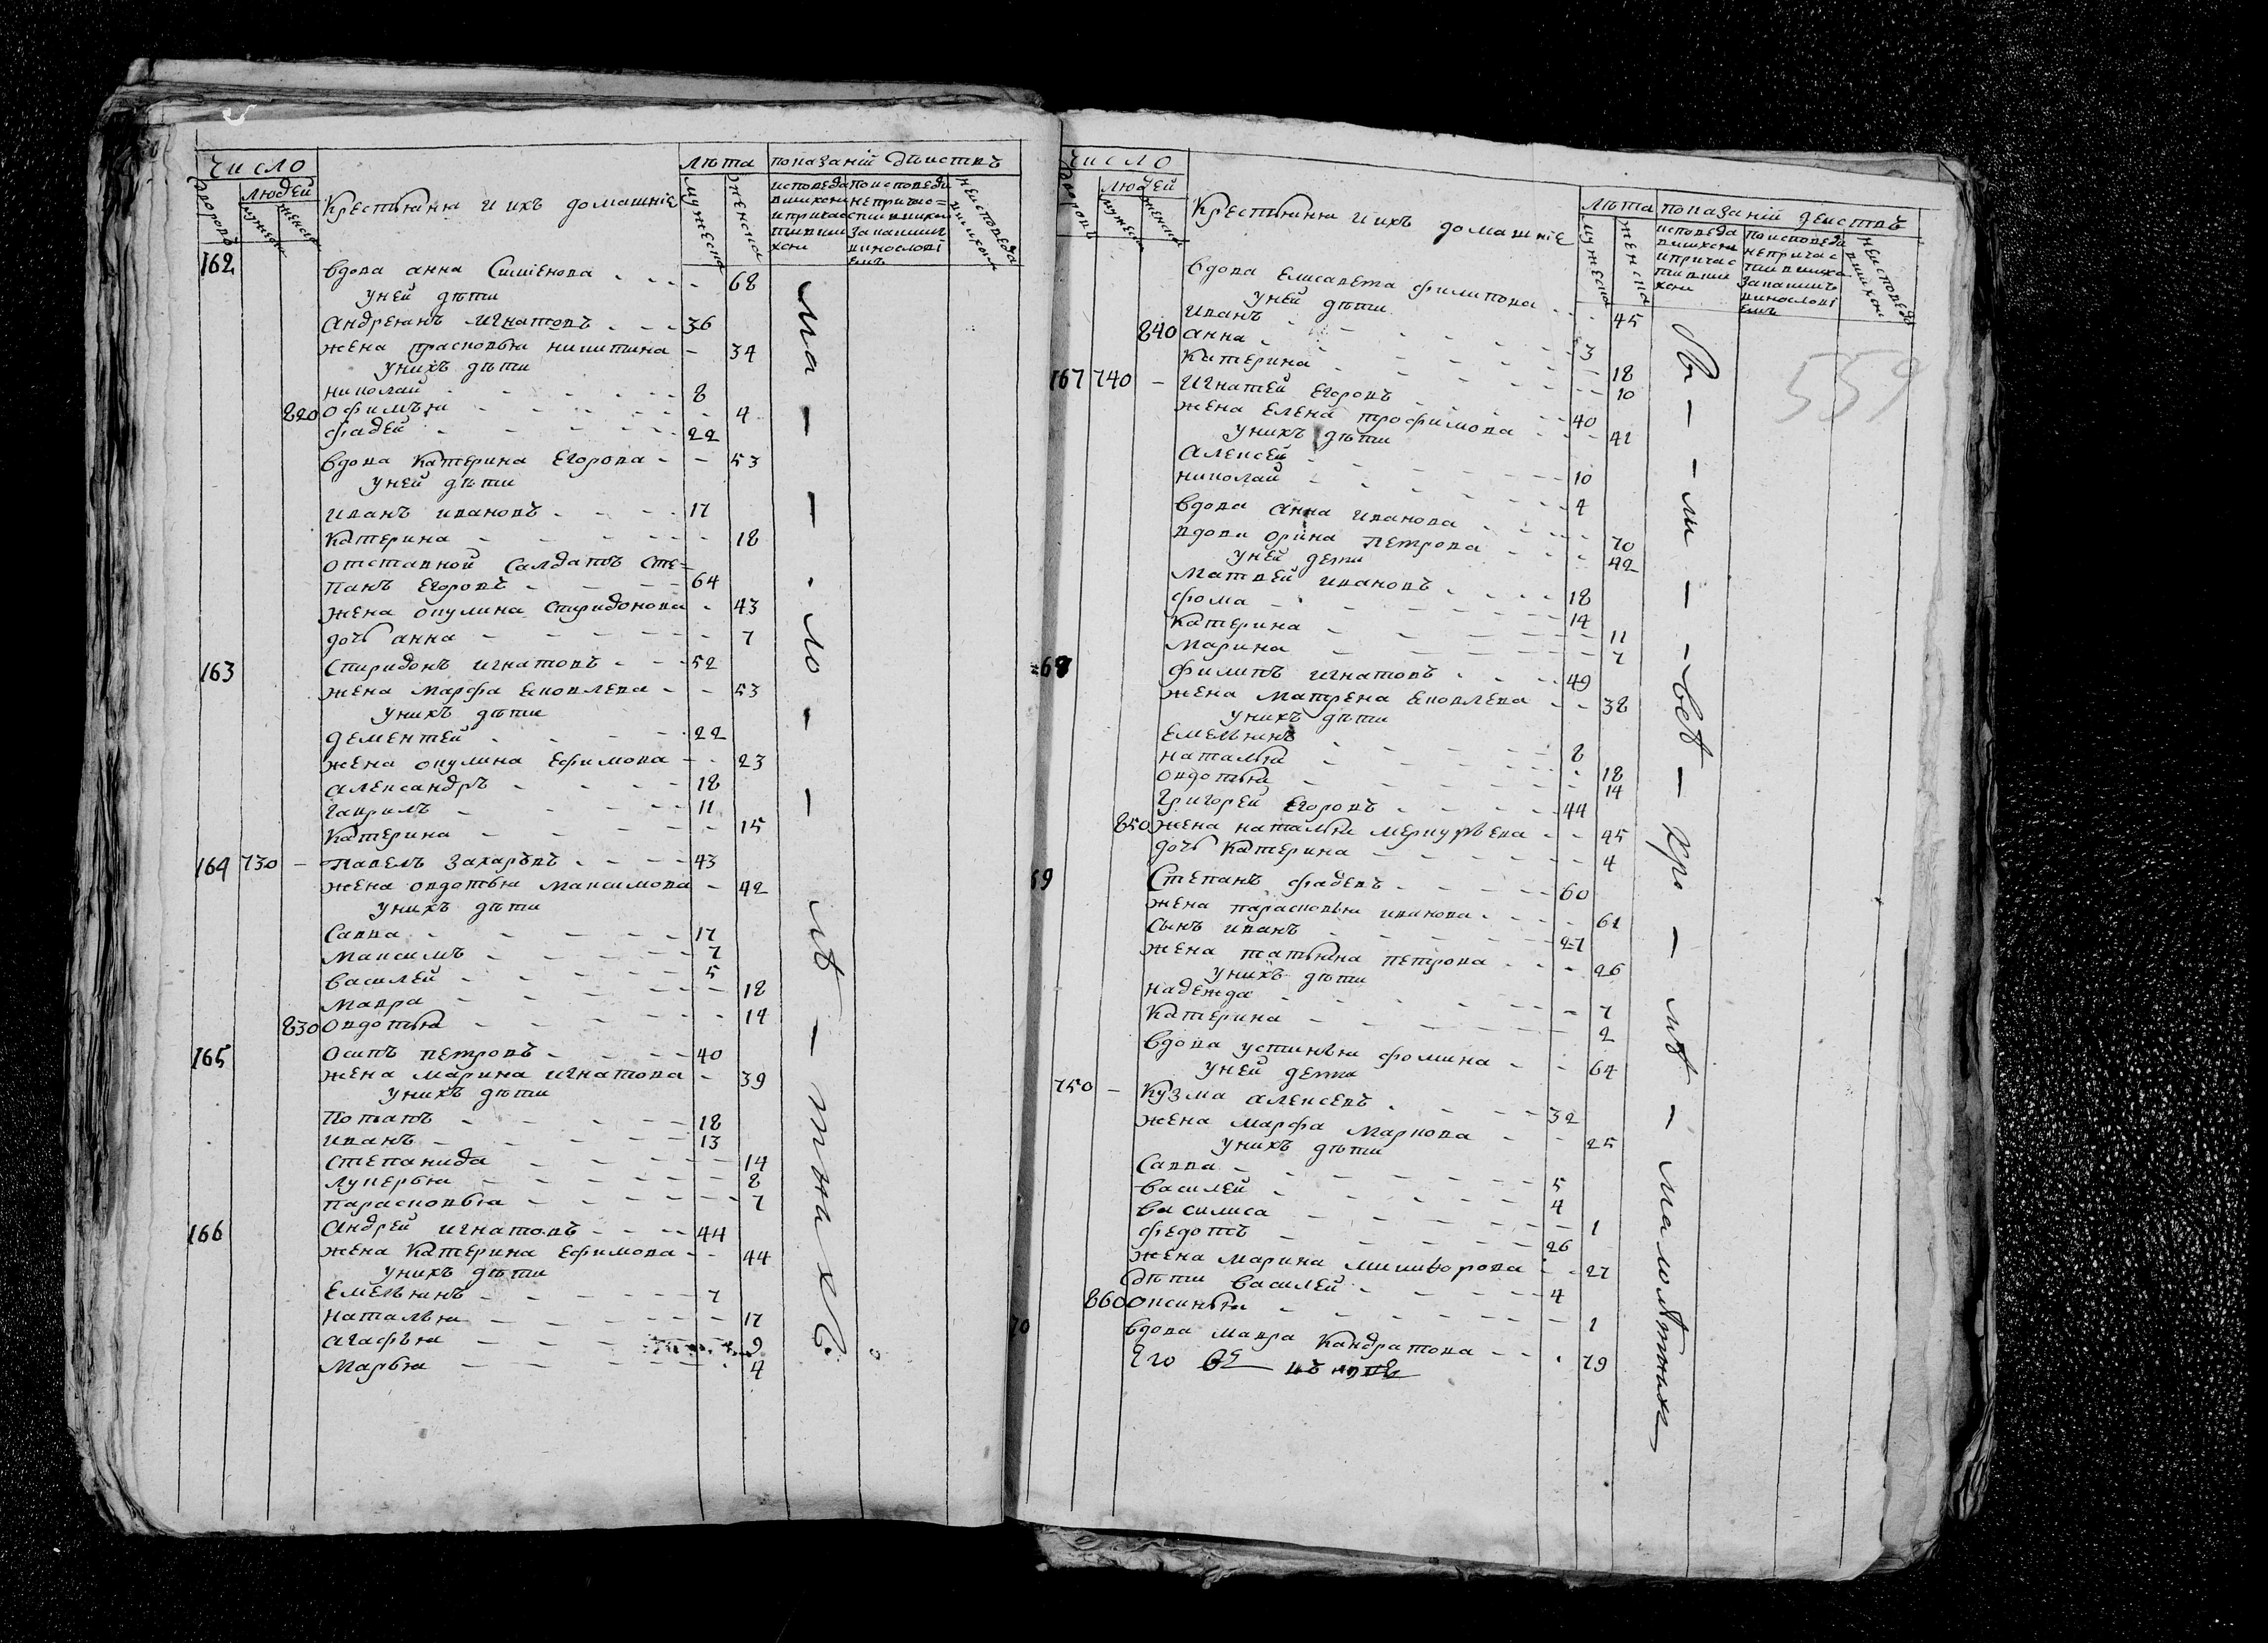 число
дворовъ
людей
мужеска
женска
Крестьяня и ихъ домашніе
лѣта
мужеска
женска
показаній дѣиствъ
исповеда вшихся и причас тивши хся
по исповеди не причас= тившихся за какимъ винословіемъ
неисповеда вшихся
162
вдова анна Симіенова - - - - 68
у ней дѣти
андреянъ игнатовъ - - - 36
жена прасковья никитина - 34
у нихъ дѣти
николай - - - - - 8
820 офимья - - - - - 4
фадей - - - - - 22
вдова Катерина Егорова - - 53
у ней дѣти
иванъ ивановъ - - - - 17
Катерина - - - - - 18
отставной Салдатъ Сте=
панъ Егоровъ - - - - 64
жена окулина спиридонова - 43
дочь анна - - - - - 7
163 Спиридонъ игнатовъ - - - 52
жена марфа Яковлева - - 53
у нихъ дѣти
дементей - - - - 22
жена окулина ефимова - - 23
александръ - - - - 18
гаврилъ - - - - 11
Катерина - - - - - 15
164 730 - Павелъ захаръвъ - - - - 43
жена овдотья максимова - 42
у нихъ дѣти
Савва - - - - - 17
максимъ - - - - 7
василей - - - - - 5
мавра - - - - - 18
830 овдотья - - - - - 14
165 осипъ петровъ - - - - 40
жена марина игнатова - 39
у нихъ дѣти
Потапъ - - - - - 18
иванъ - - - - - 13
степанида - - - - 14
лукерья - - - - - 8
парасковья - - - - - 7
166 андрей игнатовъ - - - - 44
жена Катерина Ефимова - - 44
у нихъ дѣти
Емельянъ - - - - - 7
наталья - - - - - 17
агафья - - - - 9
марья - - - - - 4
ма - - - ло - - лѣ - тнихъ
число
дворовъ
людей
мужеска
женска
Крестьяня и ихъ домашніе
лѣта
мужеска
женска
показаній деиствъ
исповеда вшихся и причас тивши хся
по исповеди не причас тившихся за какимъ винослові емъ
неисповеда вшихся
559
вдова елисавета филипова - - 45
у ней дѣти
иванъ - - - - - 3
840 анна - - - - - 18
Катерина - - - - - 10
167 740 - игнатей Егоровъ - - - 40
жена Елена трофимова - - 41
у нихъ дѣти
Алексей - - - - - 10
николай - - - - - 4
вдова анна иванова - - - 70
вдова орина петрова - - - 42
у ней дети
матвей ивановъ - - - - 18
фома - - - - - 14
Катерина - - - - - 11
марина - - - - - 7
168 филипъ игнатовъ - - - 49
жена матрена Яковлева - - 38
у нихъ дѣти
Емельянъ - - - - 8
наталья - - - - - 18
овдотья - - - - - 14
григорей Егоровъ - - - - 44
850 жена наталья меркурьева - - 45
дочь Катерина - - - - - 4
69 Степанъ фадевъ - - - - 60
жена парасковья иванова - - - 61
Сынъ иванъ - - - - - 27
жена татьяна петрова - - - 26
у нихъ дѣти
надежда - - - - - 7
Катерина - - - - - 2
вдова устинья фомина - - 64
у ней дети
750 - Кузма алексевъ - - - - 32
жена марфа маркова - - - 25
у нихъ дѣти
Савва - - - - - 5
василей - - - - - 4
василиса - - - - - 1
федотъ - - - - - 26
жена марина никифорова - - 27
дѣти василей - - - - 4
860 оксинья - - - - - 1
70 вдова мавра Кандратова - - 79
- - ли - - - - - лѣ - малолѣтнихъ